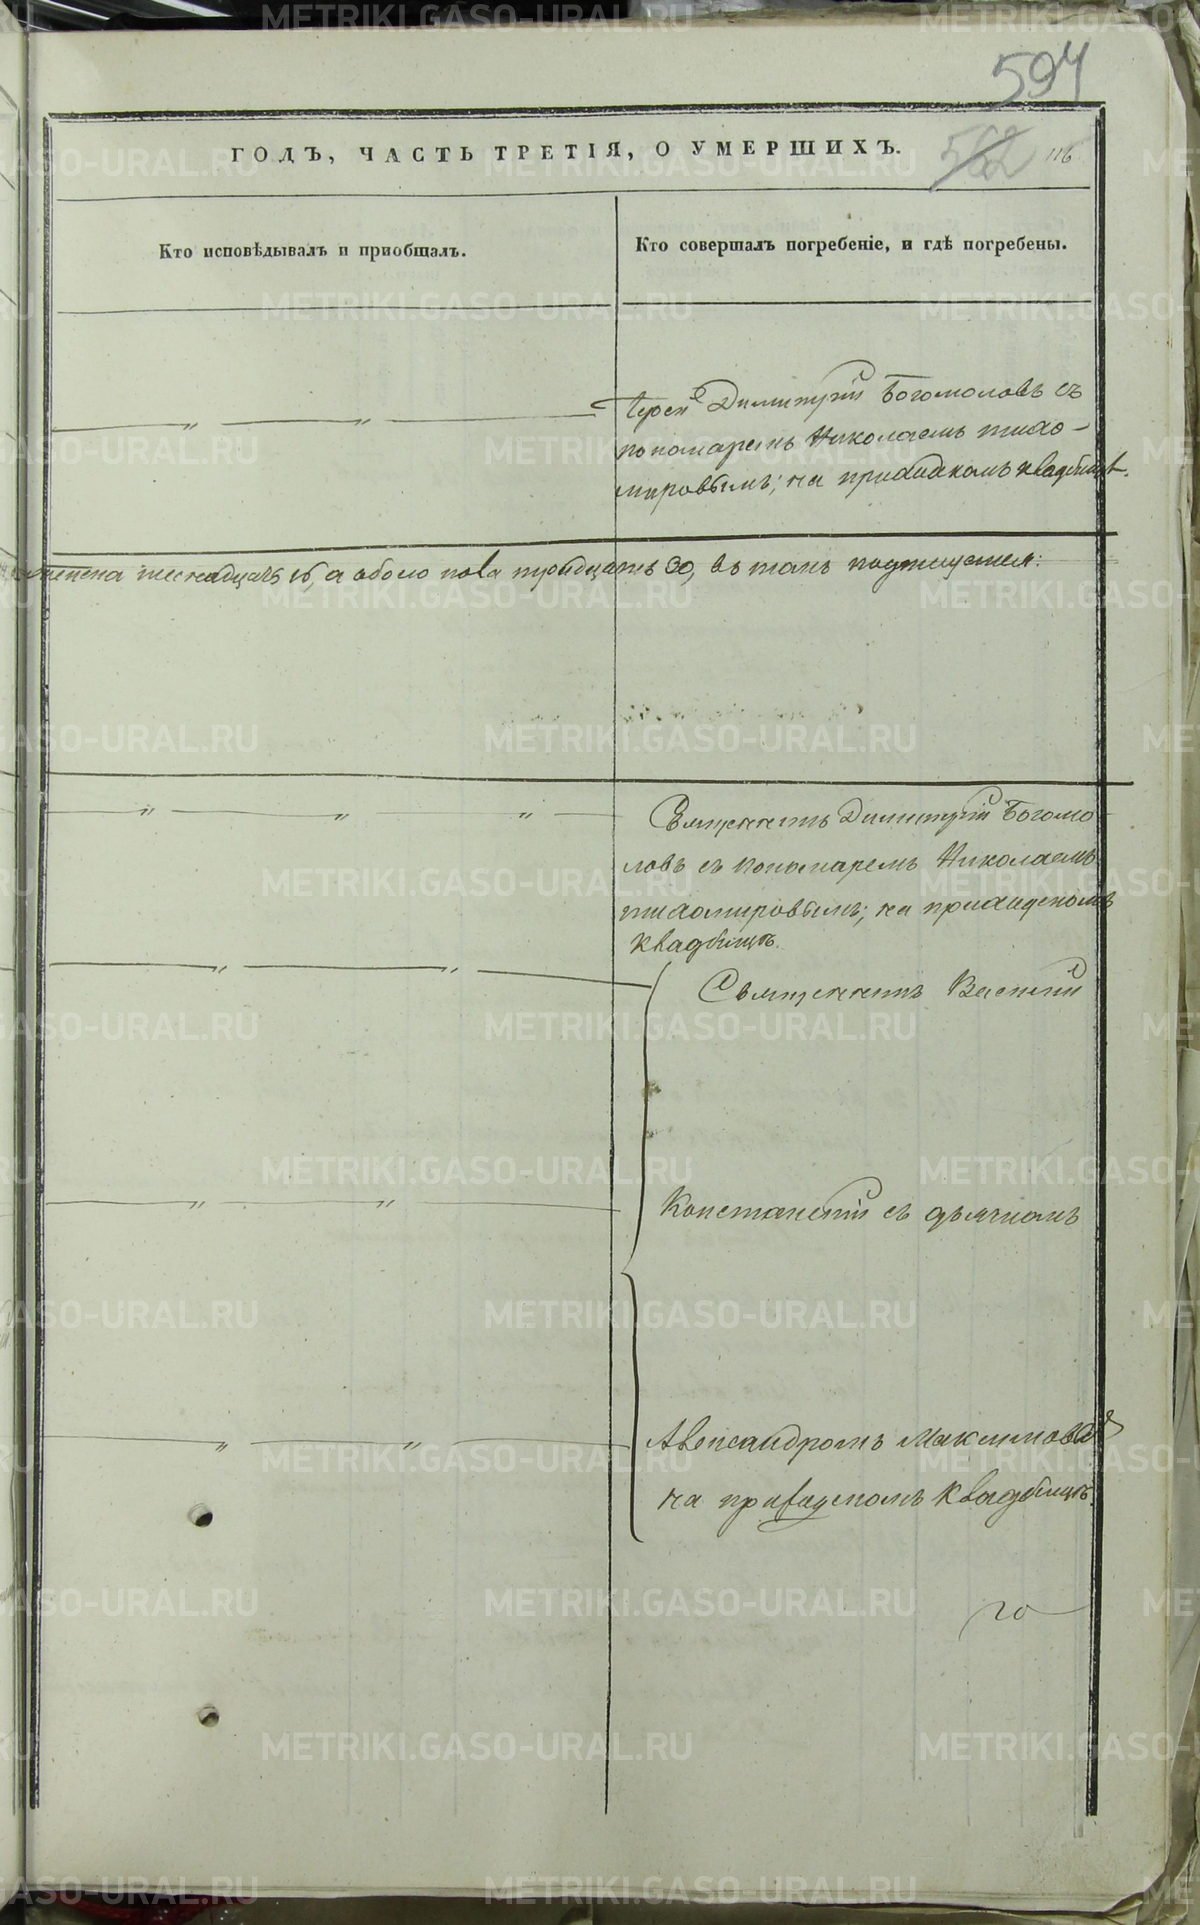 594
562 116
ГОДЪ, ЧАСТЬ ТРЕТІЯ, О УМЕРШИХЪ.
Кто исповѣдывалъ и пріобщалъ.
Кто совершалъ погребеніе, и гдѣ погребены.
Іерей Димитрій Богомоловъ съ
пономаремъ Николаемъ тихо-
мировымъ; на приходскомъ кладбищѣ.
пола тридцать 30, въ томъ
Священникъ Димитрій Богомо
ловъ съ пономаремъ Николаемъ
тихомировымъ; на приходскомъ
кладбищѣ.
Священникъ Василій
Константи съ дьячкомъ
Александромъ Максимов
на приходскомъ кладбищѣ.
METRIKI.GASO-URAL.RU